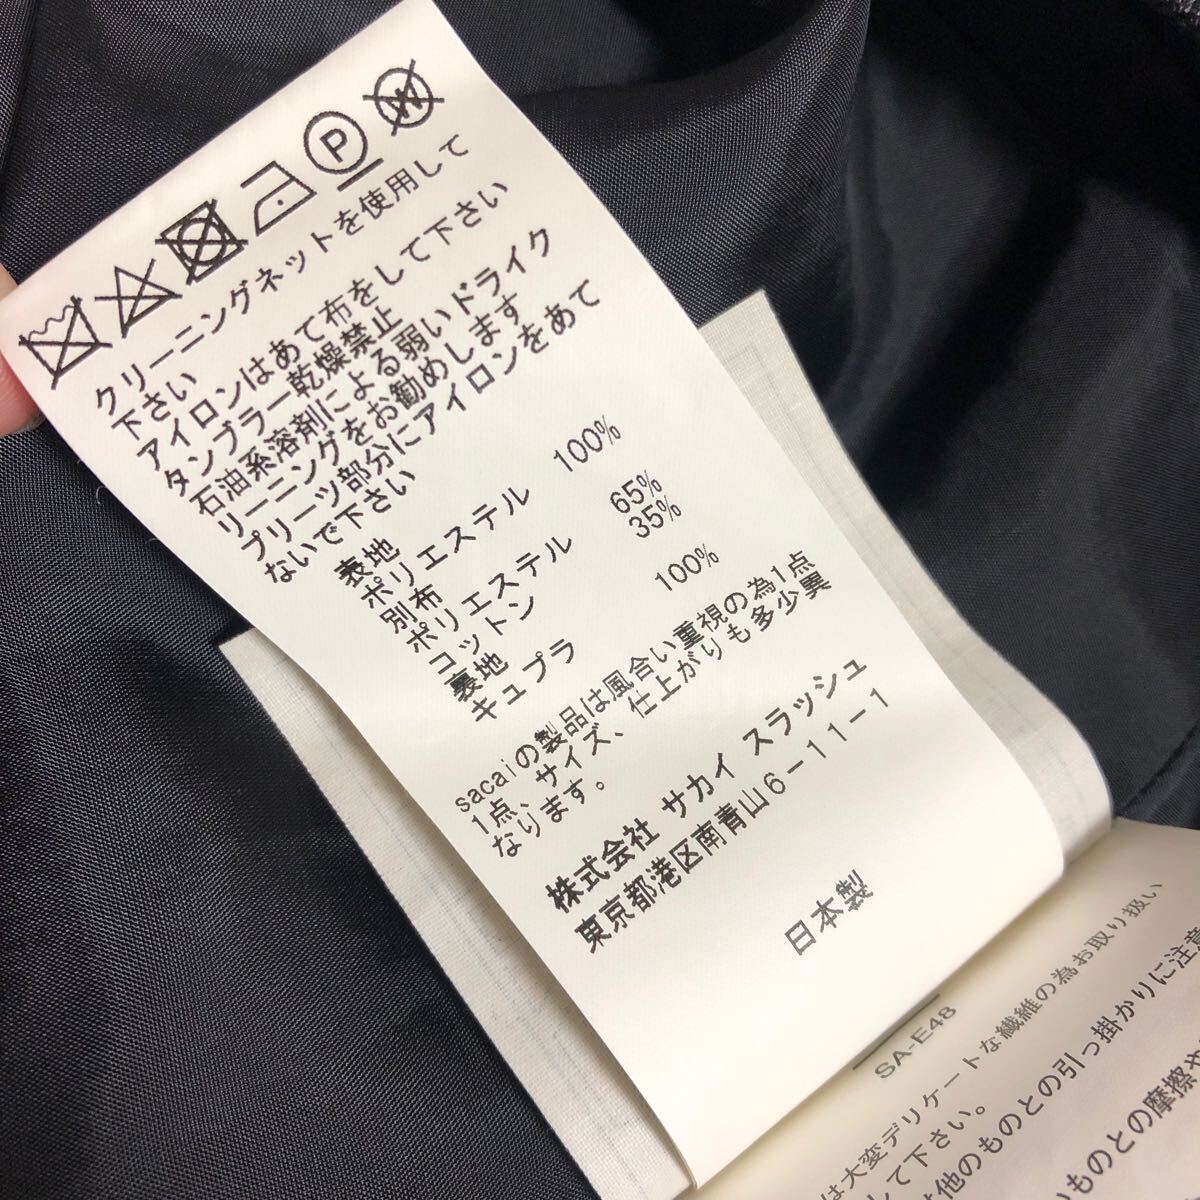 P
W
クリーニングネットを使用して
下さい
アイロンはあて布をして下さい
タンブラー乾燥禁止
石油系溶剤による弱いドライク
リーニングをお勧めします
プリーツ部分にアイロンをあて
ないで下さい
表地
ポリエステル 100%
別布
ポリエステル 65%
コットン 35%
裏地
キュプラ 100%
sacaiの製品は風合い重視の為1点
1点、サイズ、仕上がりも多少異
なります。
株式会社 サカイ スラッシュ
東京都港区南青山6-11-1
日本製
SA-E48
は大変デリケートな繊維の為お取り扱い
して下さい。
他のものとの引っ掛かりに注意
ものとの摩擦や